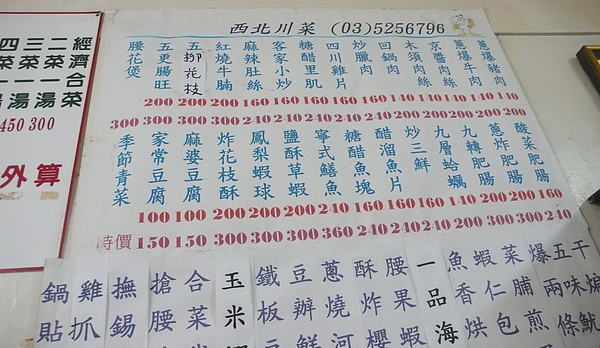 西北川菜 (03)5256796
蔥爆豬肉
蔥爆牛肉
京醬肉絲
木須肉絲
回鍋肉
炒臘肉
四川雞片
糖醋里肌
客家小炒
麻辣肚絲
紅燒牛腩
五柳花枝
五更腸旺
腰花煲
200 200 200 200 200 160 160 160 140 140 140
300 300 300 300 300 300 300 240 240 240 200 200 200 200
酸菜肥腸
蔥炸肥腸
九轉肥腸
九層蛤蠣
炒三鮮
醋溜魚片
糖醋魚塊
寧式鱔魚
鹽酥草蝦
鳳梨蝦球
炸花枝酥
麻婆豆腐
家常豆腐
季節青菜
100 100 200 200 200 240 160 160 200 200 200 160
特價 150 150 300 300 300 360 240 240 300 200 300 300 240
二菜一湯
三菜一湯
四
經濟合菜
450 300
外算
干煸魷
五味
爆兩條
菜脯煎
蝦仁包
魚香烘
一品海
腰果蝦
酥炸櫻
蔥燒河
豆瓣鮮
鐵板
玉米
合菜
搶腰
撫錫
雞抓
鍋貼